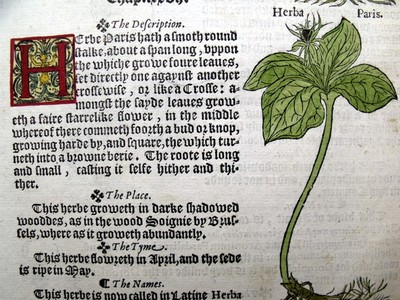 The Description.
HErbe Paris hath a smoth round
stalke, about a span long, vppon
the whiche growe foure leaues,
set directly one agaynst another
crossewise, or like a Crosse: a-
mongst the sayde leaues grow-
eth a faire starrelike flower, in the middle
whereof there commeth foorth a bud or knop,
growing harde by, and square, the which tur-
neth into a browne berie. The roote is long
and small, casting it selfe hither and thi-
ther.
The Place.
This herbe groweth in darke shadowed
woddes, as in the wood Soignie by Brus-
sels, where as it groweth abundantly.
The Tyme.
This herbe flowreth in April, and the sede
is ripe in May.
The Names.
This herbe is now called in Latine Herba
Herba Paris.